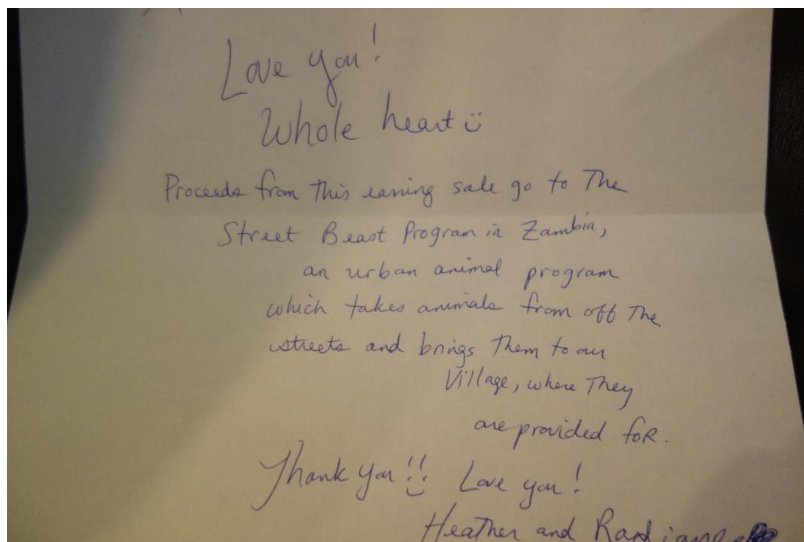 Love you!
Whole heart
Proceeds from This earring sale go to The
Street Beast Program in Zambia,
an urban animal program
which takes animals from off The
streets and brings Them to our
Village, where They
are provided foR.
Thank you!! Love you!
Heather and